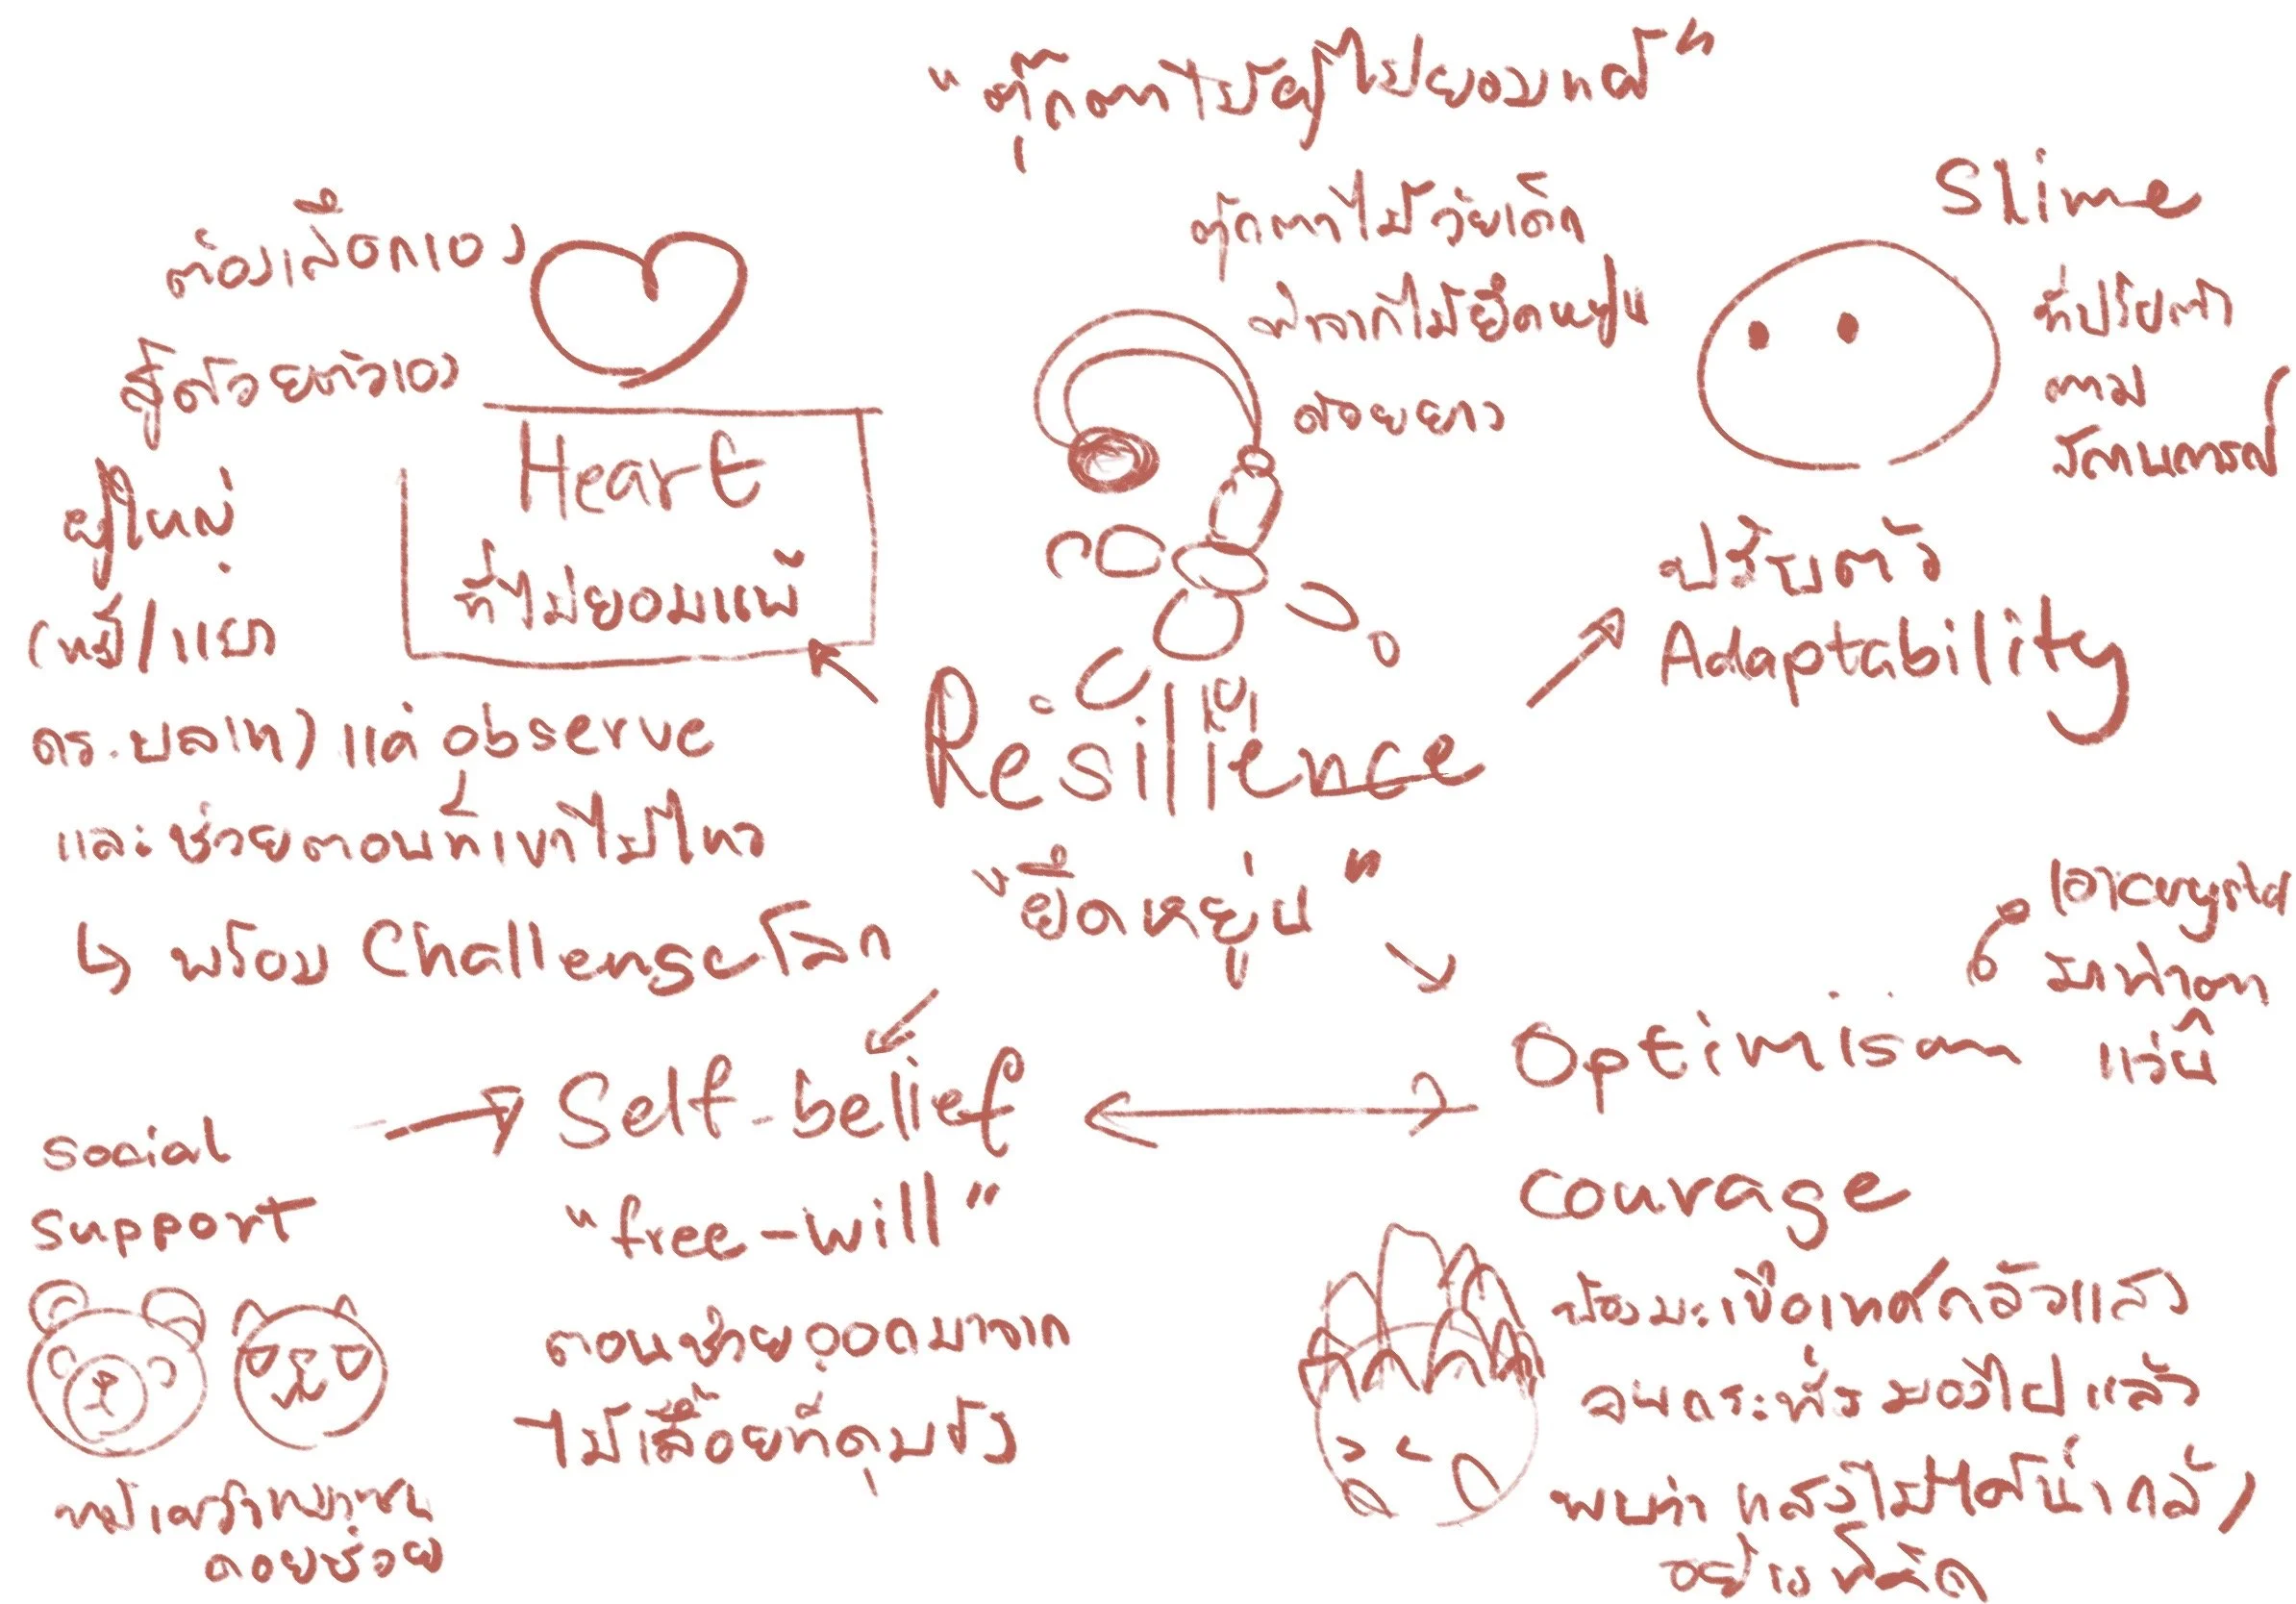 "ตุ๊กตาไม้ผู้ไม่ยอมแพ้"
ตุ๊กตาไม้วัยเด็ก
ทำจากไม้ยืดหยุ่น
สอยยาว
Slime
ที่ปรับตัว
ตาม
สถานการณ์
ปรับตัว
Adaptability
ต้องเลือกเอง
สู้ด้วยตัวเอง
Heart
ที่ไม่ยอมแพ้
ผู้ใหญ่
(หมี/แมว
ดร.ปลาเท) แค่ observe
และช่วยตอนที่เขาไม่ไหว
↳ พร้อม Challenge โลก
Resilience
"ยืดหยุ่น"
Optimism
เอา crystal
มาทำตา
แว่น
Social
Support
Self-belief
"free-will"
ตอนช่วย อ๊อด มาจาก
ไม้เลื้อยที่คุมขัง
หมี
คอยช่วย
Courage
น้องมะเขือเทศกลัวแสง
จนกระทั่งมองไปแล้ว
พบว่าแสงไม่ได้น่ากลัว
อย่างที่คิด